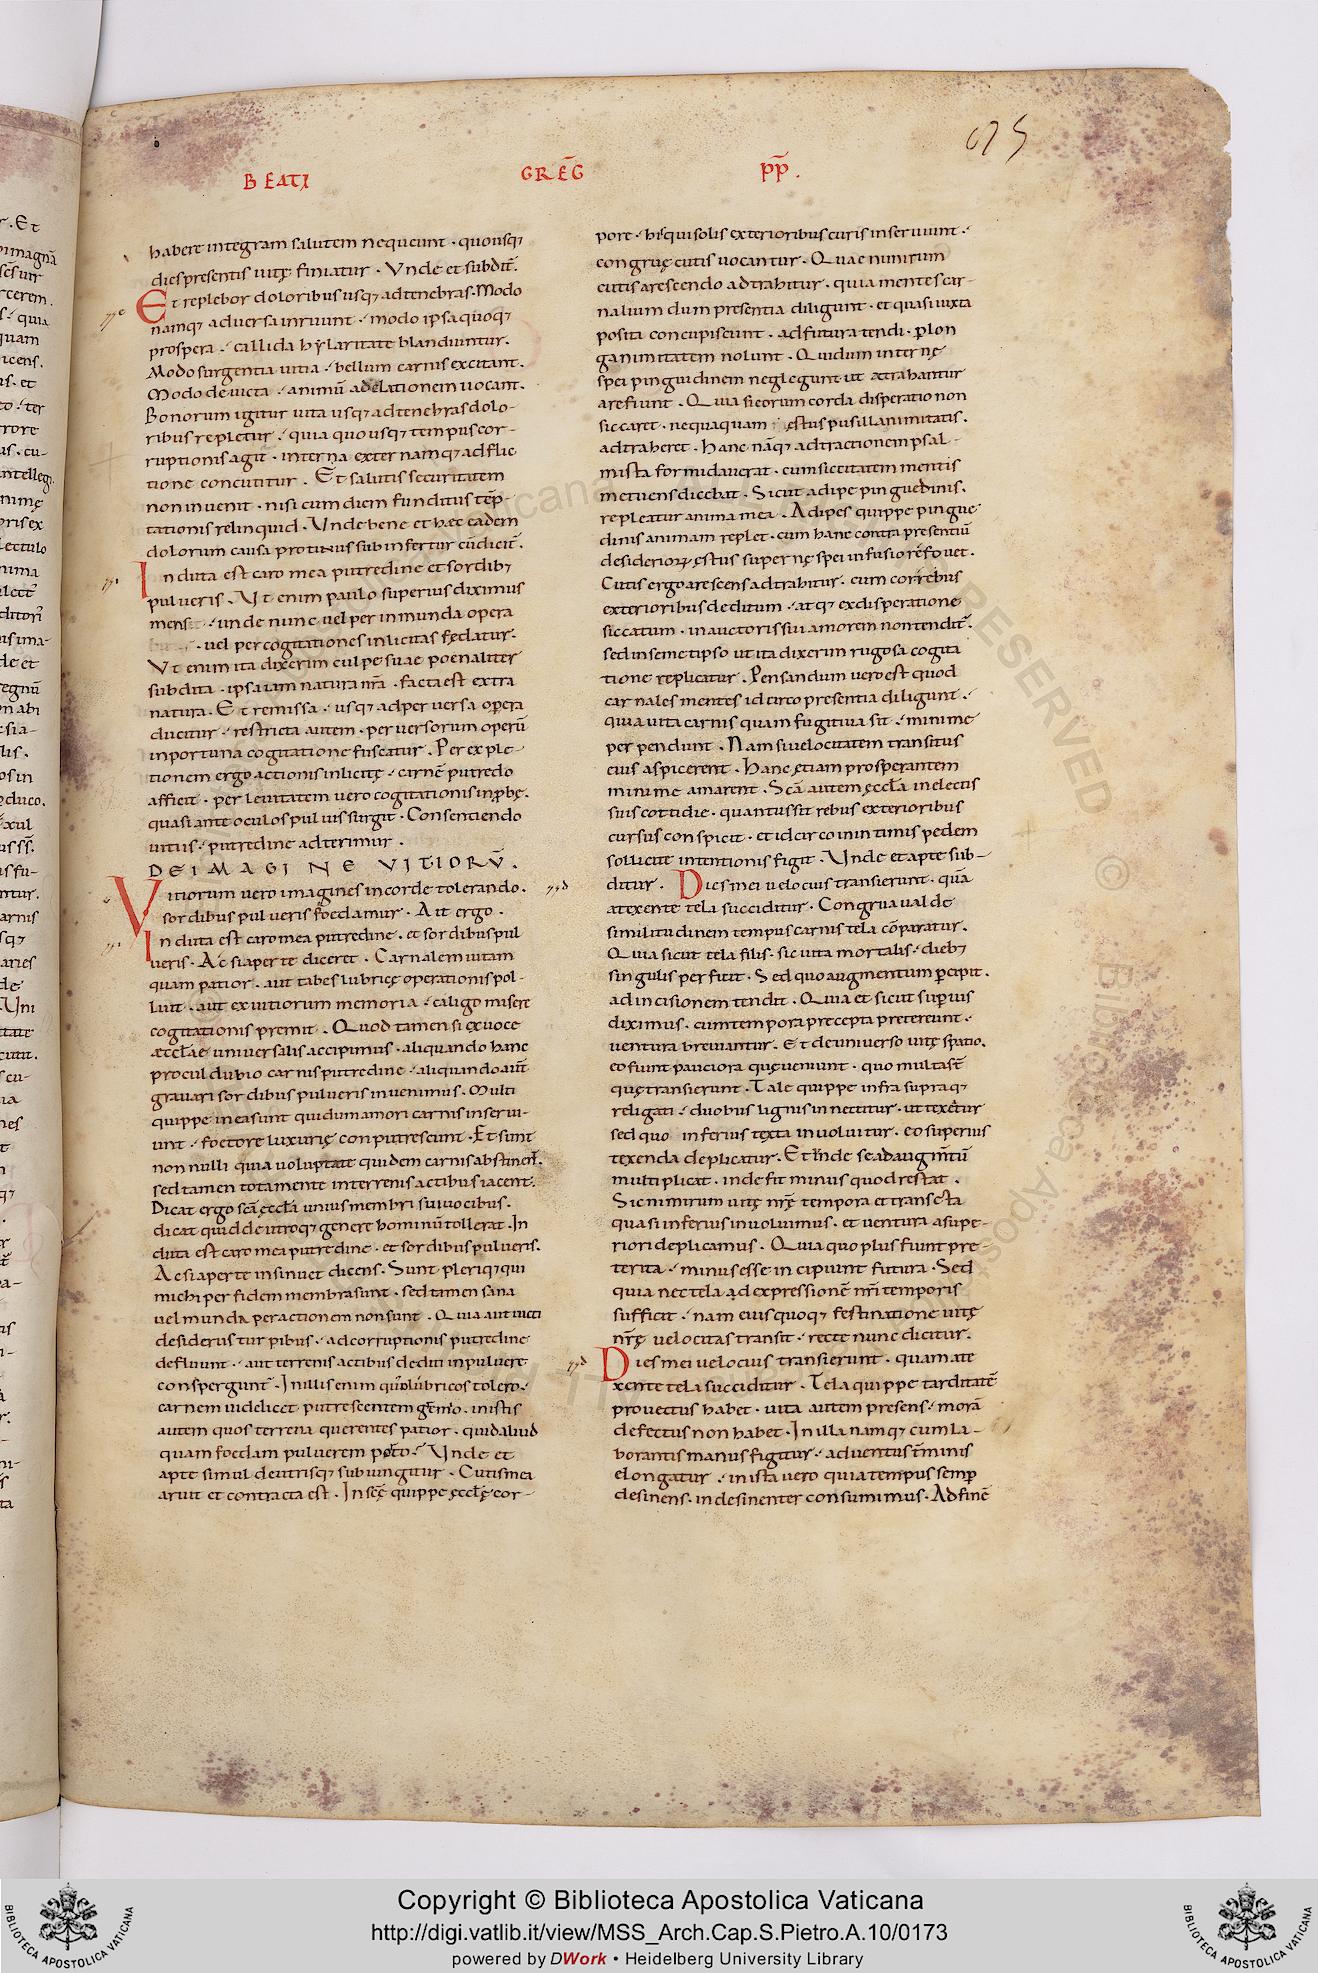 BEATI GREḠ P̄P̄.
675
habere integram salutem nequeunt · quousq;
dies presentis uitę finiatur · Vnde et subdit̄.
Et replebor doloribus usq; ad tenebras. Modo
namq; aduersa inruunt · modo ipsa quoq;
prospera · callida hẏlaritate blandiuntur.
Modo surgentia uitia · bellum carnis excitant.
Modo deuicta · animū ad elationem uocant.
Bonorum igitur uita usq; ad tenebras dolo-
ribus repletur · quia quousq; tempus cor-
ruptionis agit̄ · interna externamq; adflic
tione concutitur . Et salutis securitatem
non inuenit · nisi cum diem funditus tēp-
tationis relinquid . Vnde bene et haec eadem
dolorum causa protinus subinfertur cū dicit̄.
Induta est caro mea putredine et sordib;
pulueris . Vt enim paulo superius diximus
mens · unde nunc uel per inmunda opera
· uel per cogitationes inlicitas fędatur.
Vt enim ita dixerim culpe suae poenaliter
subdita · ipsa iam natura nr̄a · facta est extra
natura . Et remissa · usq; ad peruersa opera
ducitur · restricta autem · peruersorum operū
inportuna cogitatione fuscatur . Per exple-
tionem ergo actionis inlicitę · carnē putredo
afficit · per leuitatem uero cogitationis inp̄bę.
quasi ante oculos puluis surgit · Consentiendo
uitiis · putredine adterimur .
DE IMAGINE VITIORV̄.
Vitiorum uero imagines in corde tolerando.
sordibus pulueris foedamur · Ait ergo .
Induta est caro mea putredine · et sordibus pul
ueris . Ac si aperte diceret . Carnalem uitam
quam patior . aut tabes lubricę operationis pol-
luit . aut ex uitiorum memoria · caligo misere
cogitationis premit . Quod tamen si ex uoce
aeccl̄ae uniuersalis accipimus · aliquando hanc
procul dubio carnis putredine · aliquando aut̄
grauari sordibus pulueris inuenimus . Multi
quippe in ea sunt qui dum amori carnis inserui-
unt · foetore luxurię conputrescunt . Et sunt
non nulli quia uoluptate quidem carnis abstinent.
sed tamen tota mente in terrenis actibus iacent.
Dicat ergo sc̄a eccl̄a unius membri sui uocibus .
dicat quid de utroq; genere hominū tollerat . In
duta est caro mea putredine · et sordibus pulueris.
Ac si aperte insinuet dicens . Sunt pleriq; qui
michi per fidem membra sunt · sed tamen sana
uel munda per actionem non sunt . Quia aut uicti
desideriis turpibus · ad corruptionis putredine
defluunt · aut terrenis actibus dediti in puluere
conspergunt̄ . In illis enim quos lubricos tolero ·
carnem uidelicet putrescentem gemo . in istis
autem quos terrena querentes patior · quid aliud
quam foedam puluerem porto · Vnde et
apte simul de utrisq; subiungitur . Cutis mea
aruit et contracta est . In sc̄ę quippe ęccl̄ę cor-
pore · hi qui solis exterioribus curis inseruiunt ·
congruę cutis uocantur . Quae nimirum
cutis arescendo adtrahitur . quia mentes car-
nalium dum presentia diligunt · et quasi iuxta
posita concupiscunt · ad futura tendi · p̱ lon
ganimitatem nolunt . Qui dum internę
spei pinguidinem neglegunt ut atrahantur
arefiunt . Quia si eorum corda disperatio non
siccaret · nequaquam ęstus pusillanimitatis .
adtraheret . Hanc nāq; adtractionem psal-
mista formidauerat · cum siccitatem mentis
metuens dicebat . Sicut adipe pinguedinis .
repleatur anima mea . Adipes quippe pingue
dinis animam replet · cum hanc contra presentiū
desiderioꝝ ęstus supernę spei infusio refouet .
Cutis ergo arescens adtrahitur · cum cor rebus
exterioribus deditum · atq; ex disperatione
siccatum · in auctoris sui amorem non tendit̄ .
sed in semetipso ut ita dixerim rugosa cogita
tione replicatur . Pensandum uero est quod
carnales mentes idcirco presentia diligunt ·
quia uita carnis quam fugitiua sit · minime
perpendunt . Nam si uelocitatem transitus
eius aspicerent . Hanc ętiam prosperantem
minime amarent . Sc̄a autem ęccl̄a in electis
suis cottidie · quantus sit rebus exterioribus
cursus conspicit · et idcirco in intimis pedem
sollicite intentionis figit . Vnde et apte sub-
ditur . Dies mei uelocius transierunt · quā
atexente tela succiditur . Congrua ualde
similitudinem tempus carnis tela cōparatur .
Quia sicut tela filis . sic uita mortalis · dieb;
singulis perficit . Sed quo augmentum p̱cipit .
ad incisionem tendit . Quia et sicut sup̱ius
diximus . cum tempora precepta pretereunt ·
uentura breuiantur . Et de uniuerso uitę spatio .
eo fiunt pauciora quę ueniunt · quo multa st̄
quę transierunt . Tale quippe infra supraq;
religati · duobus lignis innectitur · ut texetur
sed quo inferius texta inuoluitur · eo superius
texenda deplicatur . Et unde se ad augm̄tū
multiplicat · inde fit minus quod restat .
Sic nimirum uitę nr̄ę tempora et transacta
quasi inferius inuoluimus · et uentura a supe-
riori deplicamus . Quia quo plus fiunt pre-
terita · minus esse incipiunt futura . Sed
quia nec tela ad expressionē nr̄i temporis
sufficit · nam eius quoq; festinatione uitę
nr̄ę uelocitas transit · recte nunc dicitur .
Dies mei uelocius transierunt · quam a te
xente tela succiditur . Tela quippe tarditatē
prouectus habet · uita autem presens · morā
defectus non habet . In illa namq; cum la-
borantis manus figitur · aduentus t̄minis
elongatur · in ista uero quia tempus semp̱
desinens . indesinenter consumimus . Ad finē
Copyright © Biblioteca Apostolica Vaticana
http://digi.vatlib.it/view/MSS_Arch.Cap.S.Pietro.A.10/0173
powered by DWork • Heidelberg University Library
BIBLIOTECA APOSTOLICA VATICANA
BIBLIOTECA APOSTOLICA VATICANA